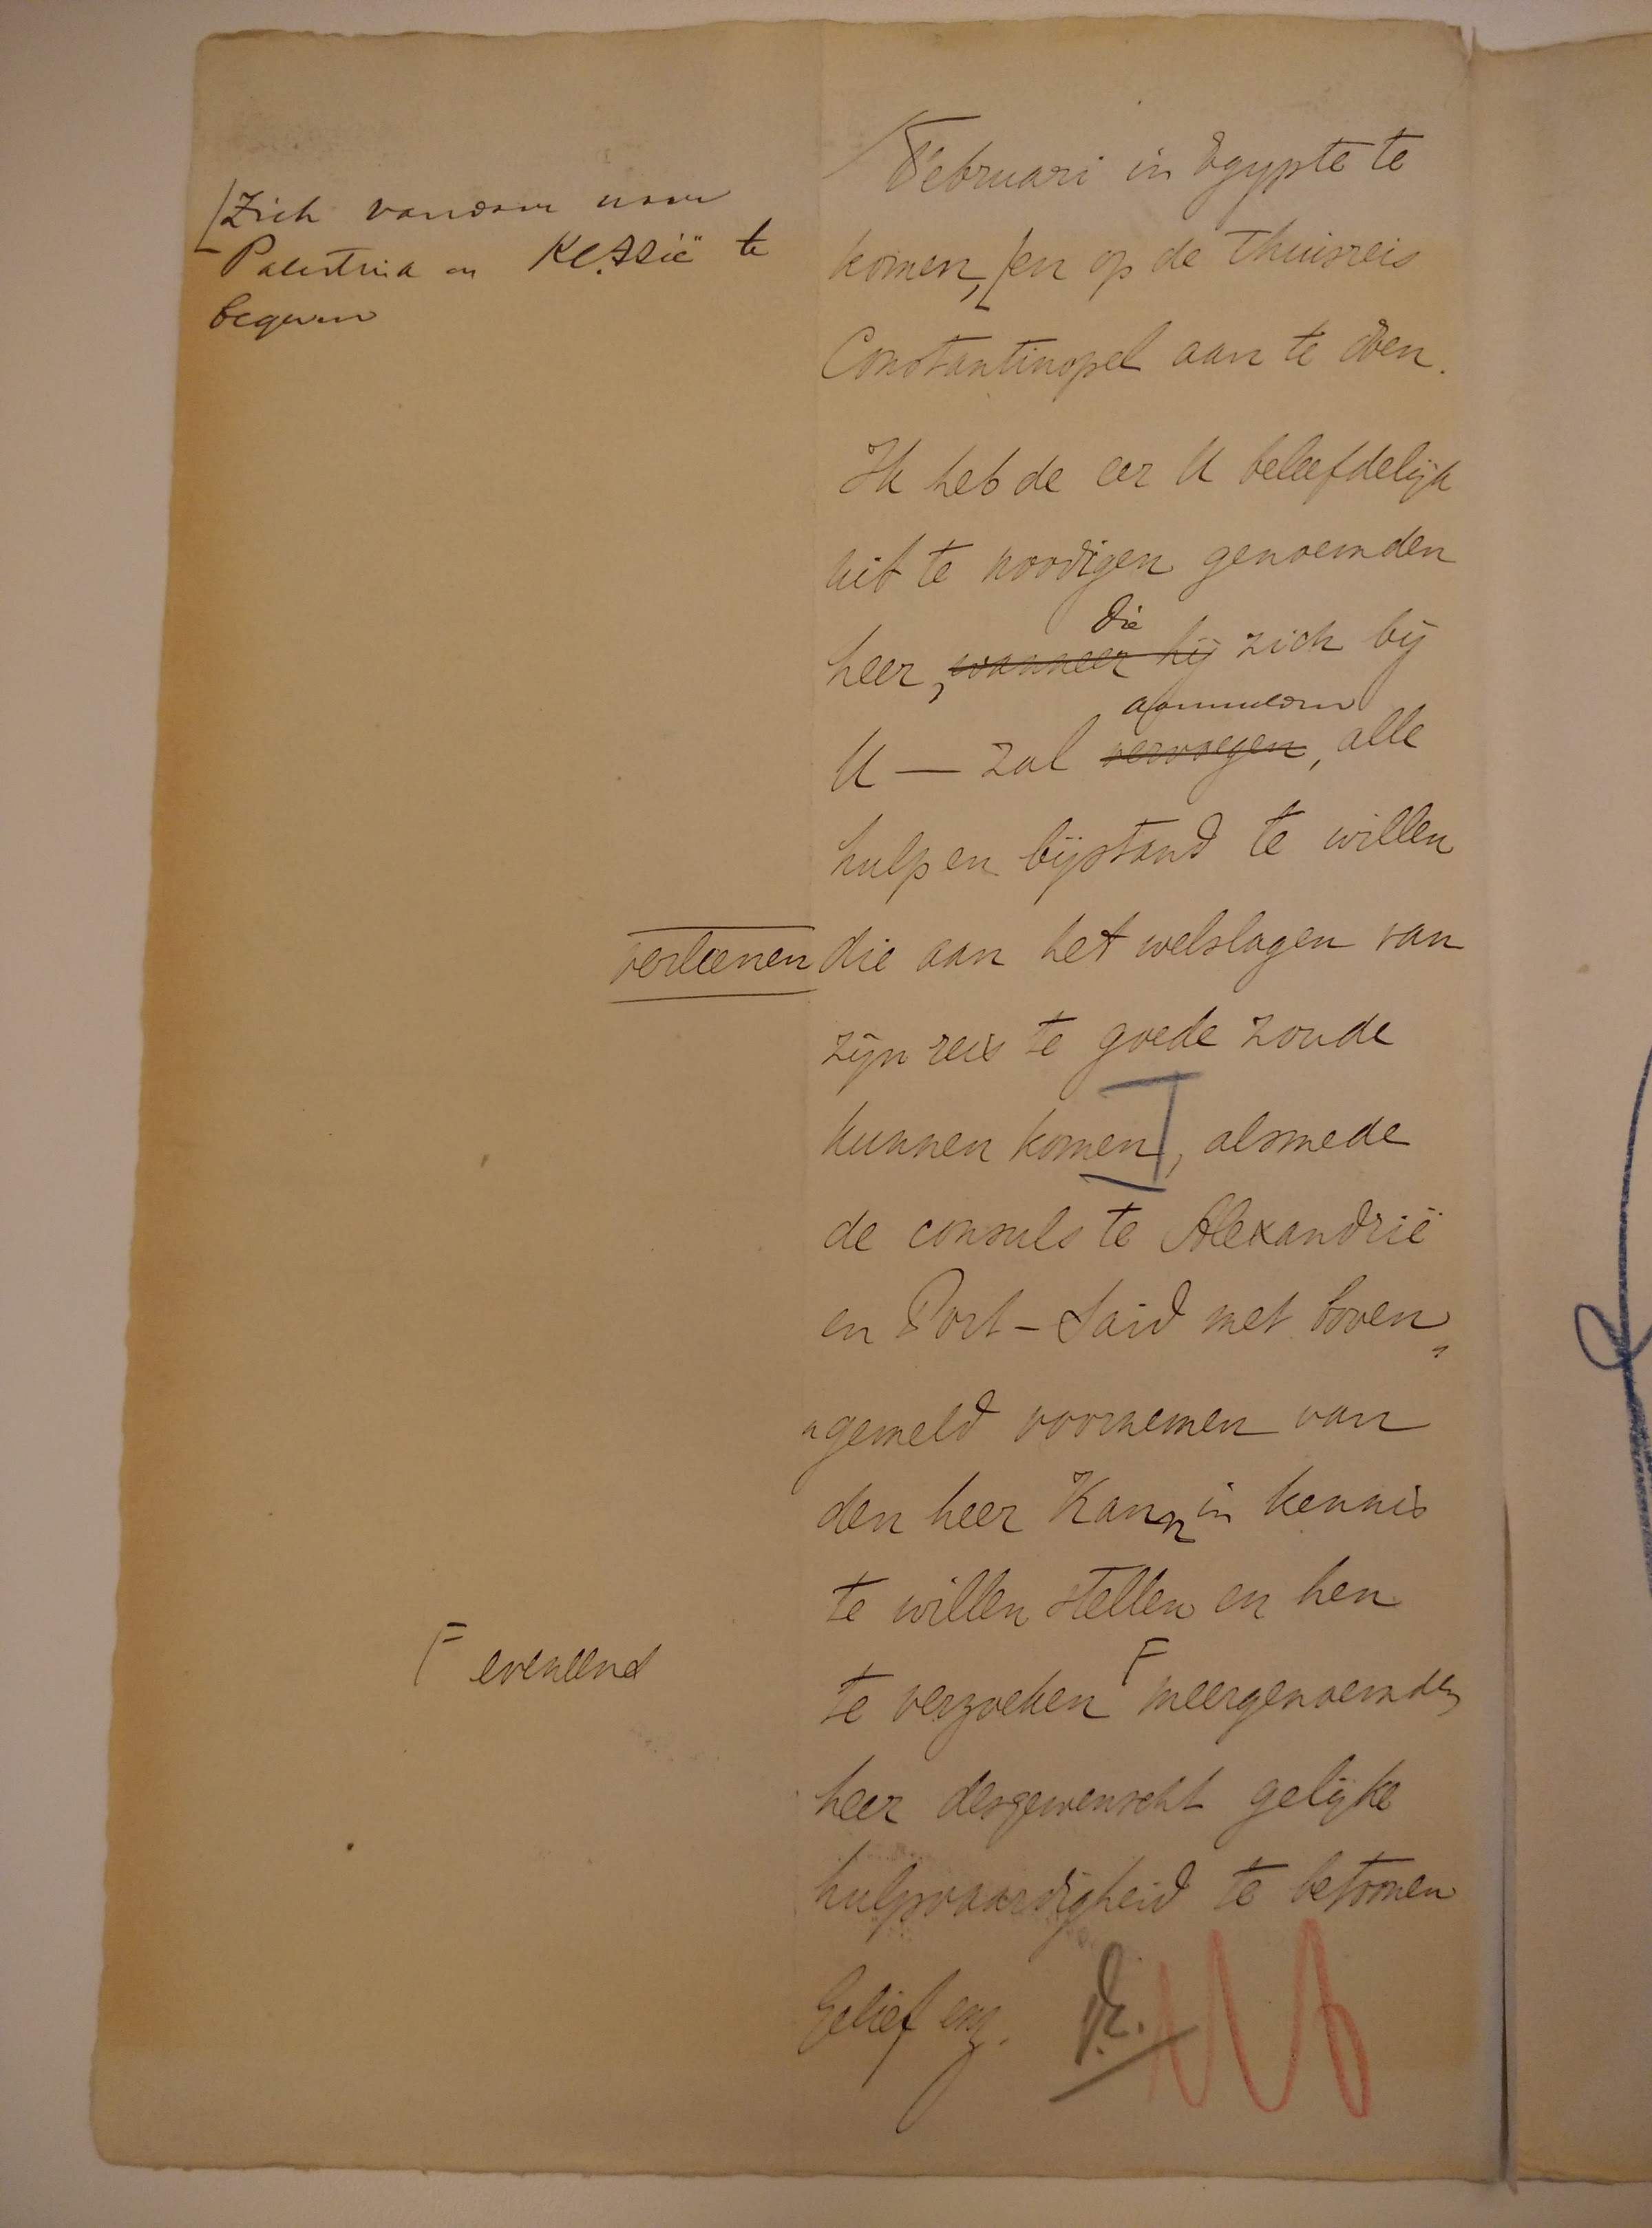 Februari in Egypte te
[Zich vandaar naar
Palestina en Kl. Azië te
begeven
komen, [en op de thuisreis
Constantinopel aan te doen.
Ik heb de eer U beleefdelijk
uit te noodigen genoemden
die
heer, wanneer hij zich bij
aanmelden
U — zal vervoegen, alle
hulp en bijstand te willen
verleenen die aan het welslagen van
zijn reis te goede zoude
kunnen komen, alsmede
de consuls te Alexandrië
en Port-Said met boven„
„gemeld voornemen van
den heer Kann in kennis
te willen stellen en hen
F eveneens
te verzoeken F meergenoemden
heer desgewenscht gelijke
hulpvaardigheid te betoonen
Gelief enz.